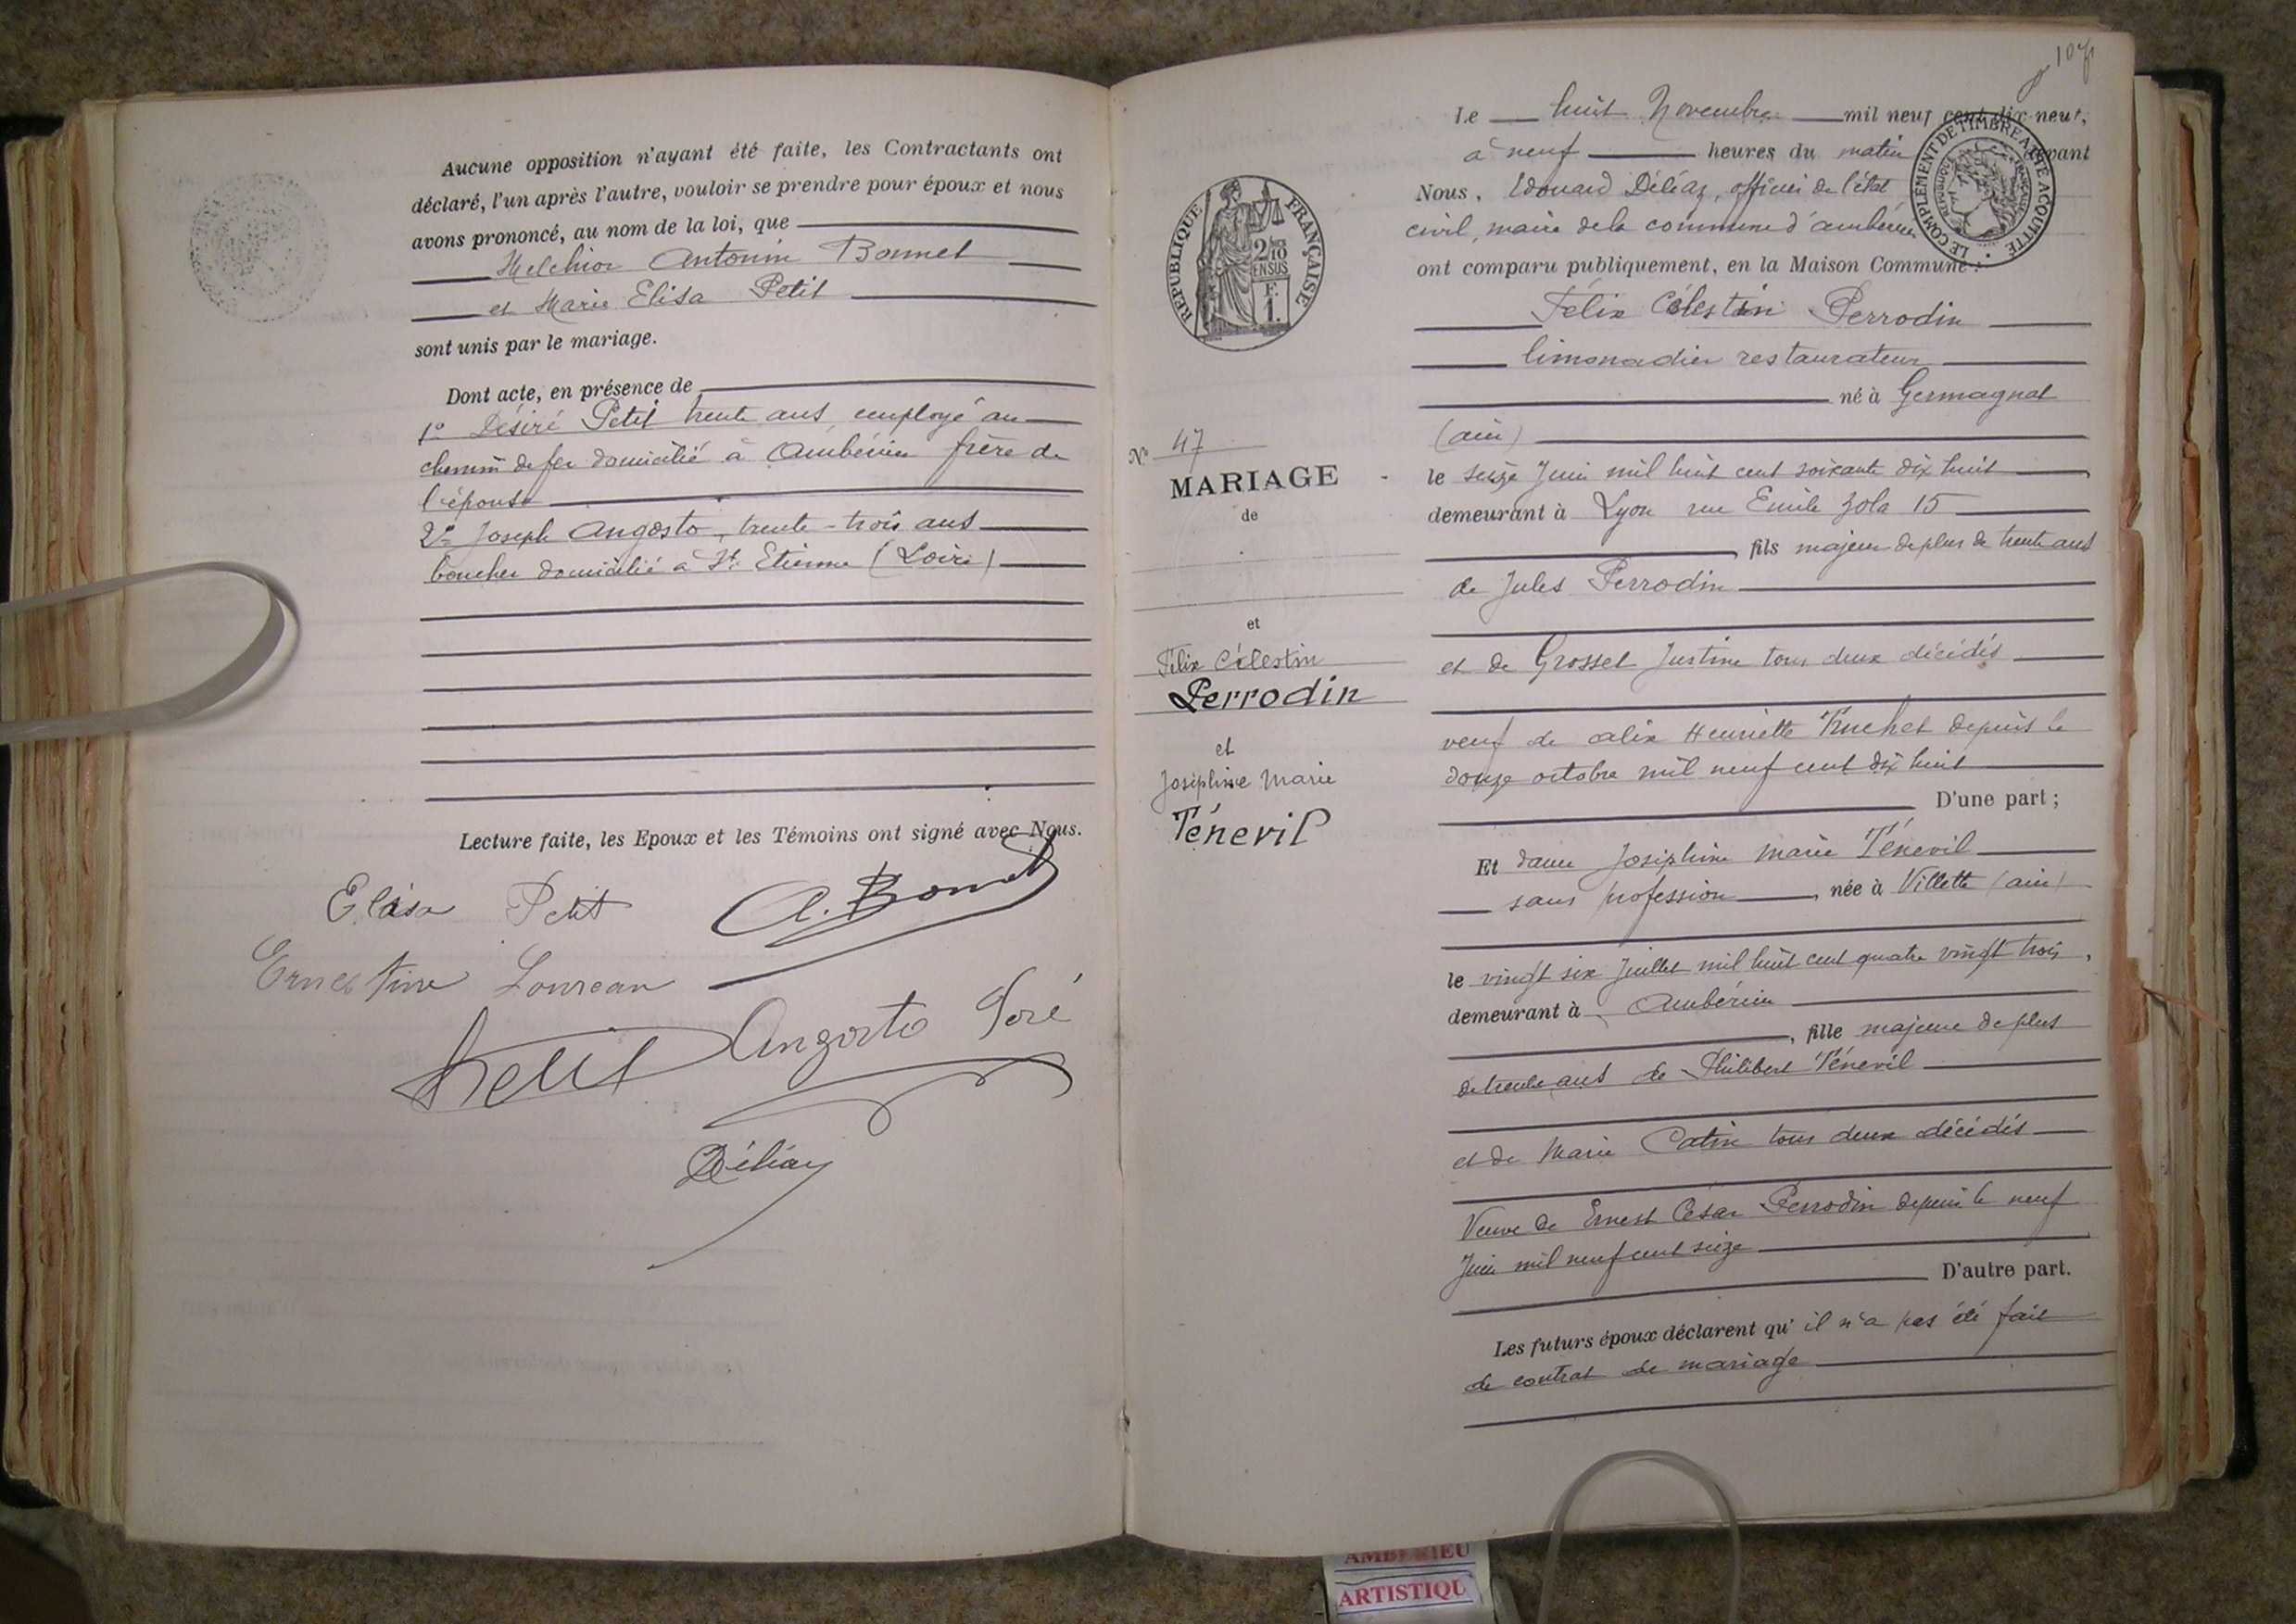 Aucune opposition n'ayant été faite, les Contractants ont
déclaré, l'un après l'autre, vouloir se prendre pour époux et nous
avons prononcé, au nom de la loi, que
Melchior Antonin Bonnet
et Marie Elisa Petit
sont unis par le mariage.
Dont acte, en présence de
1º Désiré Petit trente ans employé au
chemin de fer domicilié à Ambérieu frère de
l'épouse
2º Joseph Angosto, trente-trois ans
boucher domicilié à St Etienne (Loire)
Lecture faite, les Epoux et les Témoins ont signé avec Nous.
Elisa Petit
A. Bonnet
Ernestine Loureau
Petit
Angosto José
Déléaz
107
REPUBLIQUE FRANÇAISE
2/10
EN SUS
F.
1.
Nº 47
MARIAGE
de
et
Félix Célestin
Perrodin
et
Joséphine Marie
Ténevil
LE COMPLEMENT DE TIMBRE A ETE ACQUITTE
Le huit Novembre mil neuf cent dix-neuf,
à neuf heures du matin devant
Nous, Edouard Déléaz, officier de l'état
civil, maire de la commune d'ambérieu
ont comparu publiquement, en la Maison Commune :
Félix Célestin Perrodin
limonadier restaurateur
né à Germagnat
(ain)
le seize Juin mil huit cent soixante dix huit
demeurant à Lyon rue Emile Zola 15
, fils majeur de plus de trente ans
de Jules Perrodin
et de Grosset Justine tous deux décédés
veuf de alix Henriette Truchet depuis le
douze octobre mil neuf cent dix huit
D'une part ;
Et dame Joséphine Marie Ténevil
sans profession, née à Villette (ain)
le vingt six Juillet mil huit cent quatre vingt trois,
demeurant à Ambérieu
, fille majeure de plus
de trente ans de Philibert Ténevil
et de Marie Catin tous deux décédés
Veuve de Ernest César Perrodin depuis le neuf
Juin mil neuf cent seize
D'autre part.
Les futurs époux déclarent qu'il n'a pas été fait
de contrat de mariage
AMBERIEU
ARTISTIQU